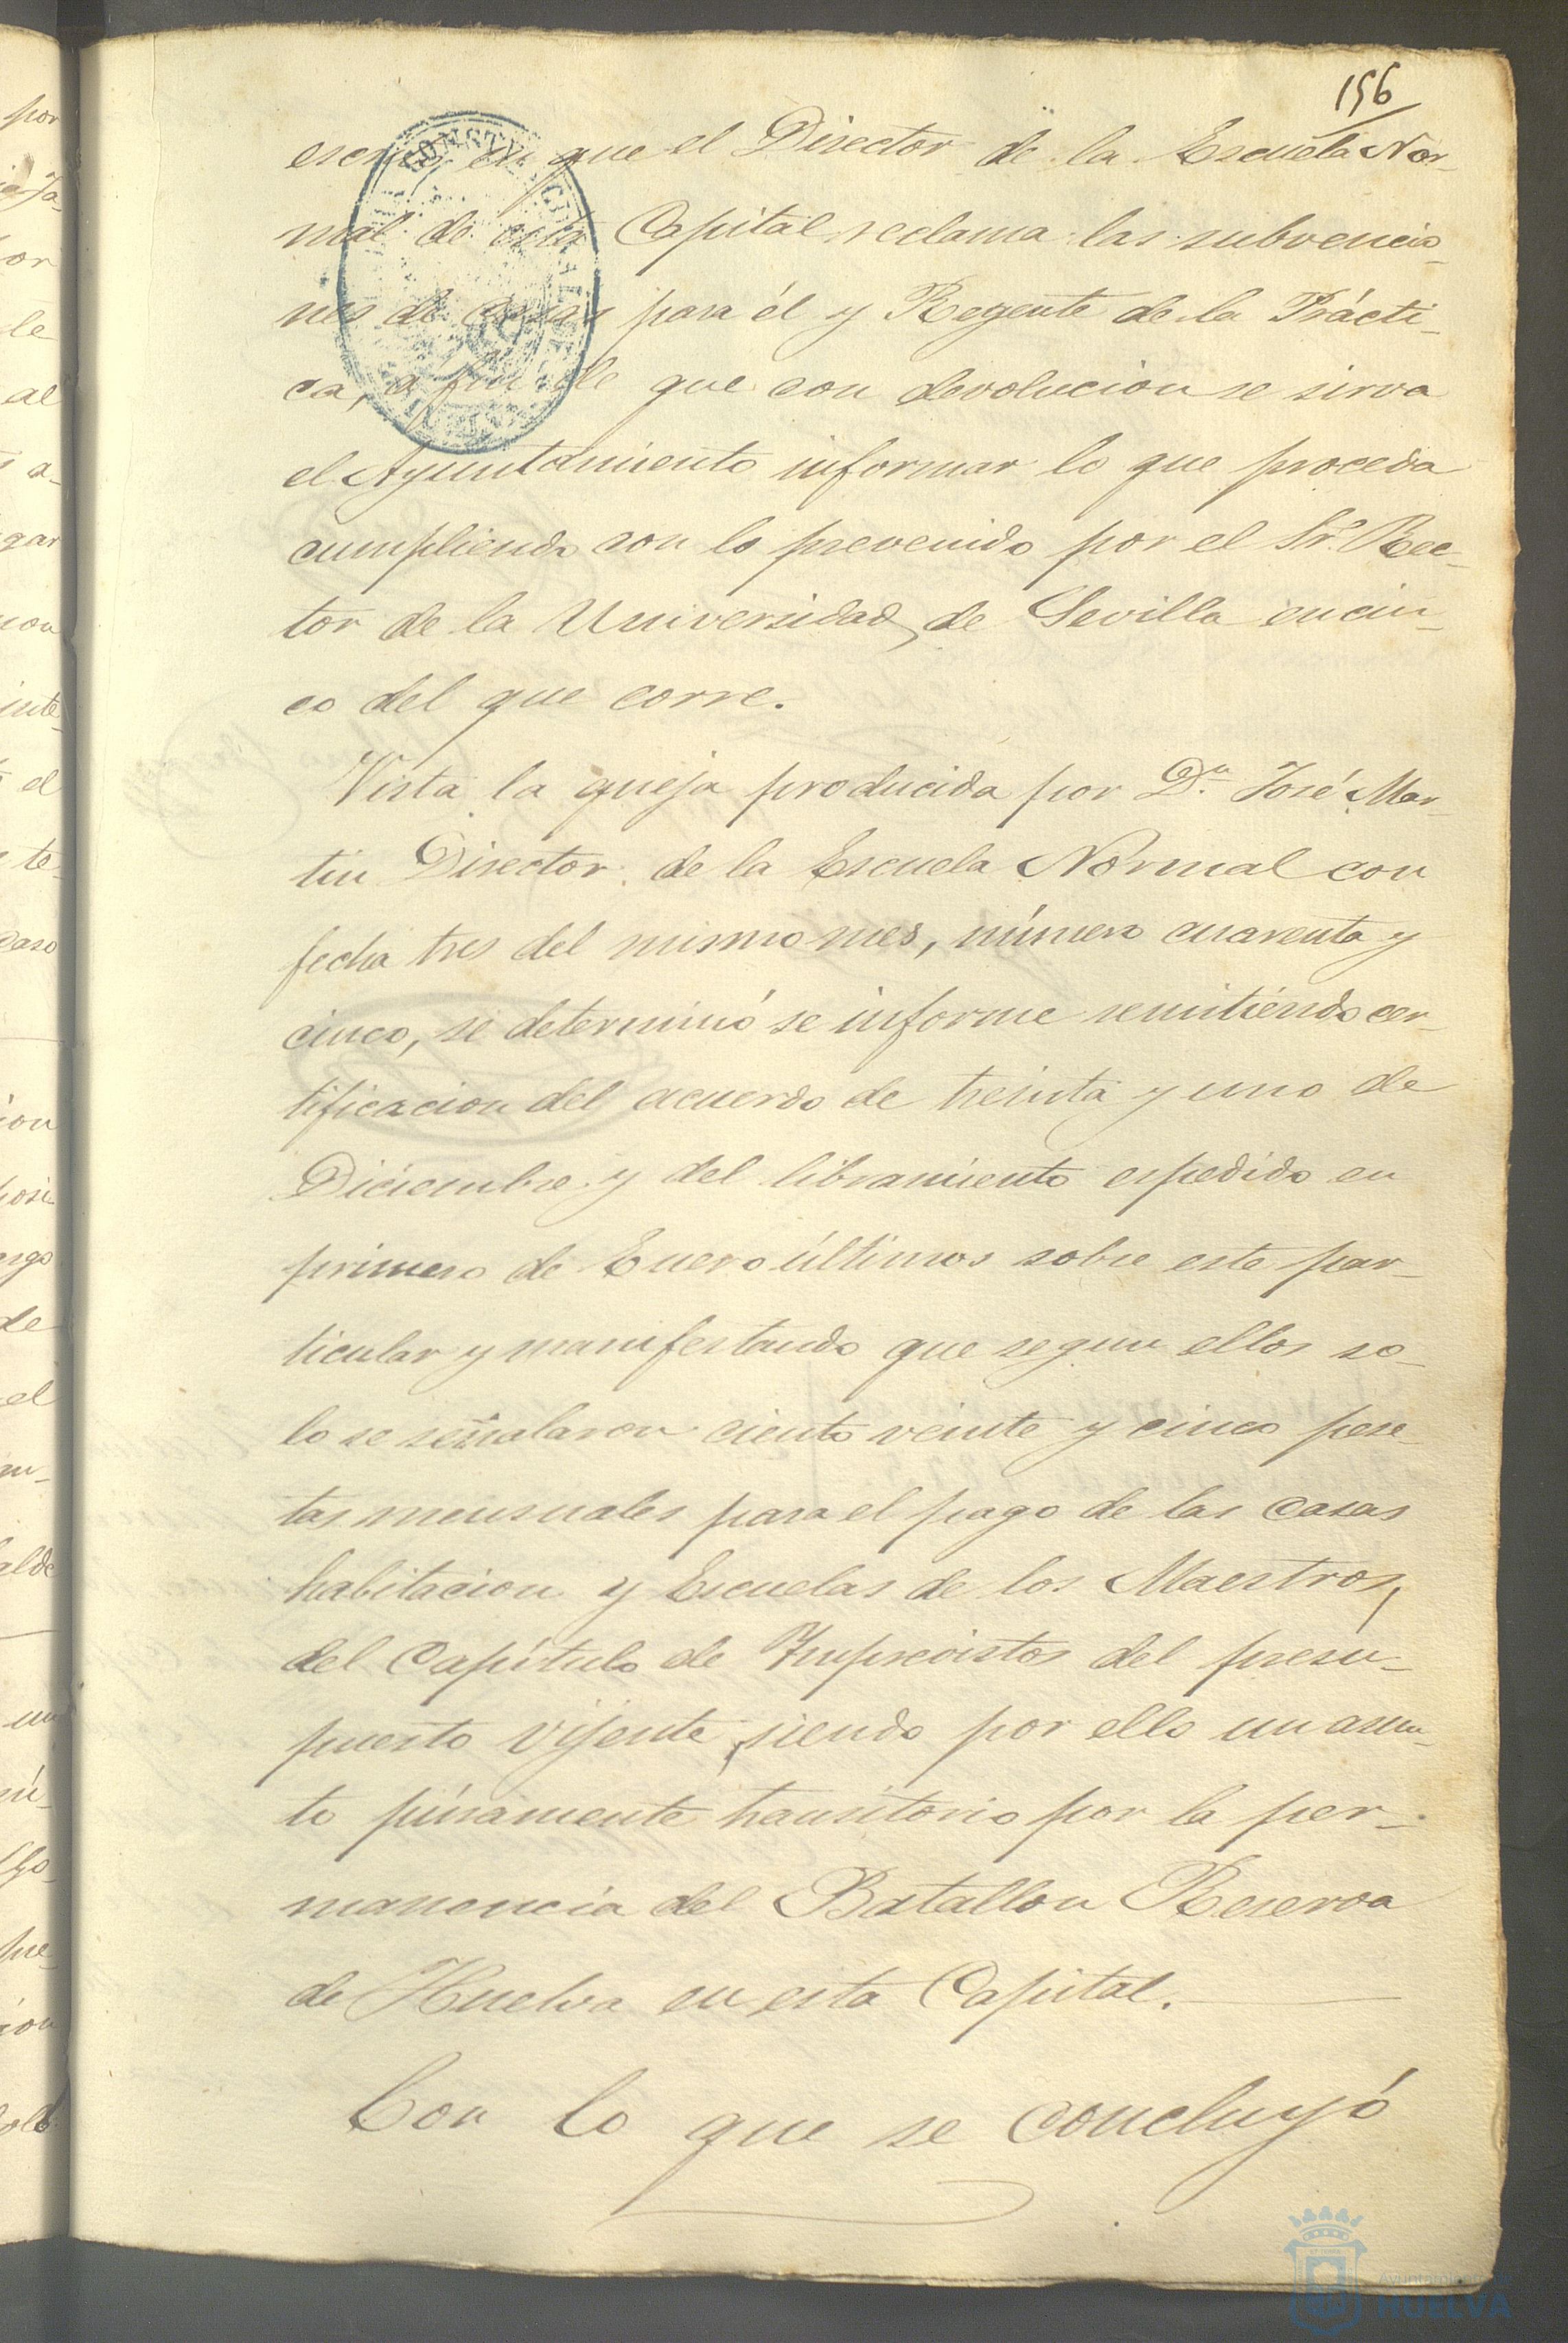 156
escrito en que el Director de la Escuela Nor-
mal de esta Capital reclama las subvencio-
nes de casas para él y Regente de la Prácti-
ca, á fin de que con devolucion se sirva
el Ayuntamiento informar lo que proceda
cumpliendo con lo prevenido por el Sr. Rec-
tor de la Universidad de Sevilla en cin-
co del que corre.
Vista la queja producida por Dn. José Mar-
tin Director de la Escuela Normal con
fecha tres del mismo mes, número cuarenta y
cinco, se determinó se informe remitiendo cer-
tificacion del acuerdo de treinta y uno de
Diciembre y del libramiento espedido en
primero de Enero últimos sobre este par-
ticular y manifestando que segun ellos so-
lo se señalaron ciento veinte y cinco pese-
tas mensuales para el pago de las casas
habitacion y Escuelas de los Maestros,
del Capítulo de Imprevistos del presu-
puesto vijente, siendo por ello un asun-
to púramente transitorio por la per-
manencia del Batallon Reserva
de Huelva en esta Capital.
Con lo que se concluyó
Ayuntamiento de
HUELVA